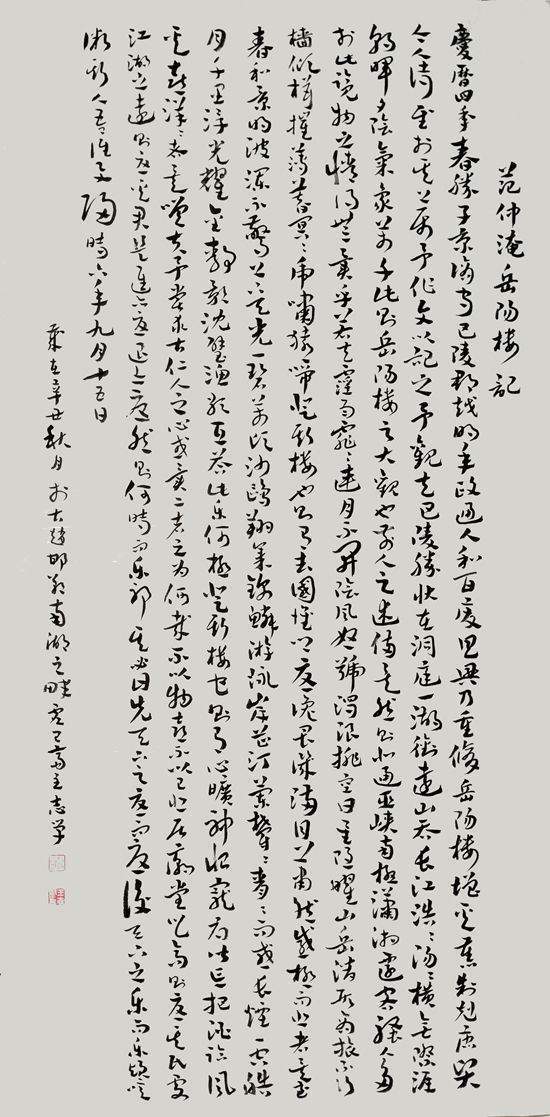 范仲淹岳陽樓記
慶曆四年春滕子京謫守巴陵郡越明年政通人和百廢具興乃重修岳陽樓增其舊制刻唐賢
今人詩賦於其上屬予作文以記之予觀夫巴陵勝狀在洞庭一湖銜遠山吞長江浩浩湯湯橫無際涯
朝暉夕陰氣象萬千此則岳陽樓之大觀也前人之述備矣然則北通巫峽南極瀟湘遷客騷人多
於此覽物之情得無異乎若夫霪雨霏霏連月不開陰風怒號濁浪排空日星隱曜山岳潛形商旅不行
檣傾楫摧薄暮冥冥虎嘯猿啼登斯樓也則有去國懷鄉憂讒畏譏滿目蕭然感極而悲者矣至
春和景明波瀾不驚上下天光一碧萬頃沙鷗翔集錦鱗游泳岸芷汀蘭鬱鬱青青而或長煙一空皓
月千里浮光耀金靜影沈璧漁歌互答此樂何極登斯樓也則有心曠神怡寵辱偕忘把酒臨風
其喜洋洋者矣嗟夫予嘗求古仁人之心或異二者之為何哉不以物喜不以己悲居廟堂之高則憂其民處
江湖之遠則憂其君是進亦憂退亦憂然則何時而樂耶其必曰先天下之憂而憂後天下之樂而樂歟噫
微斯人吾誰與歸時六年九月十五日
歲在辛丑秋月於古趙邯鄲南湖之畔己齋主志學